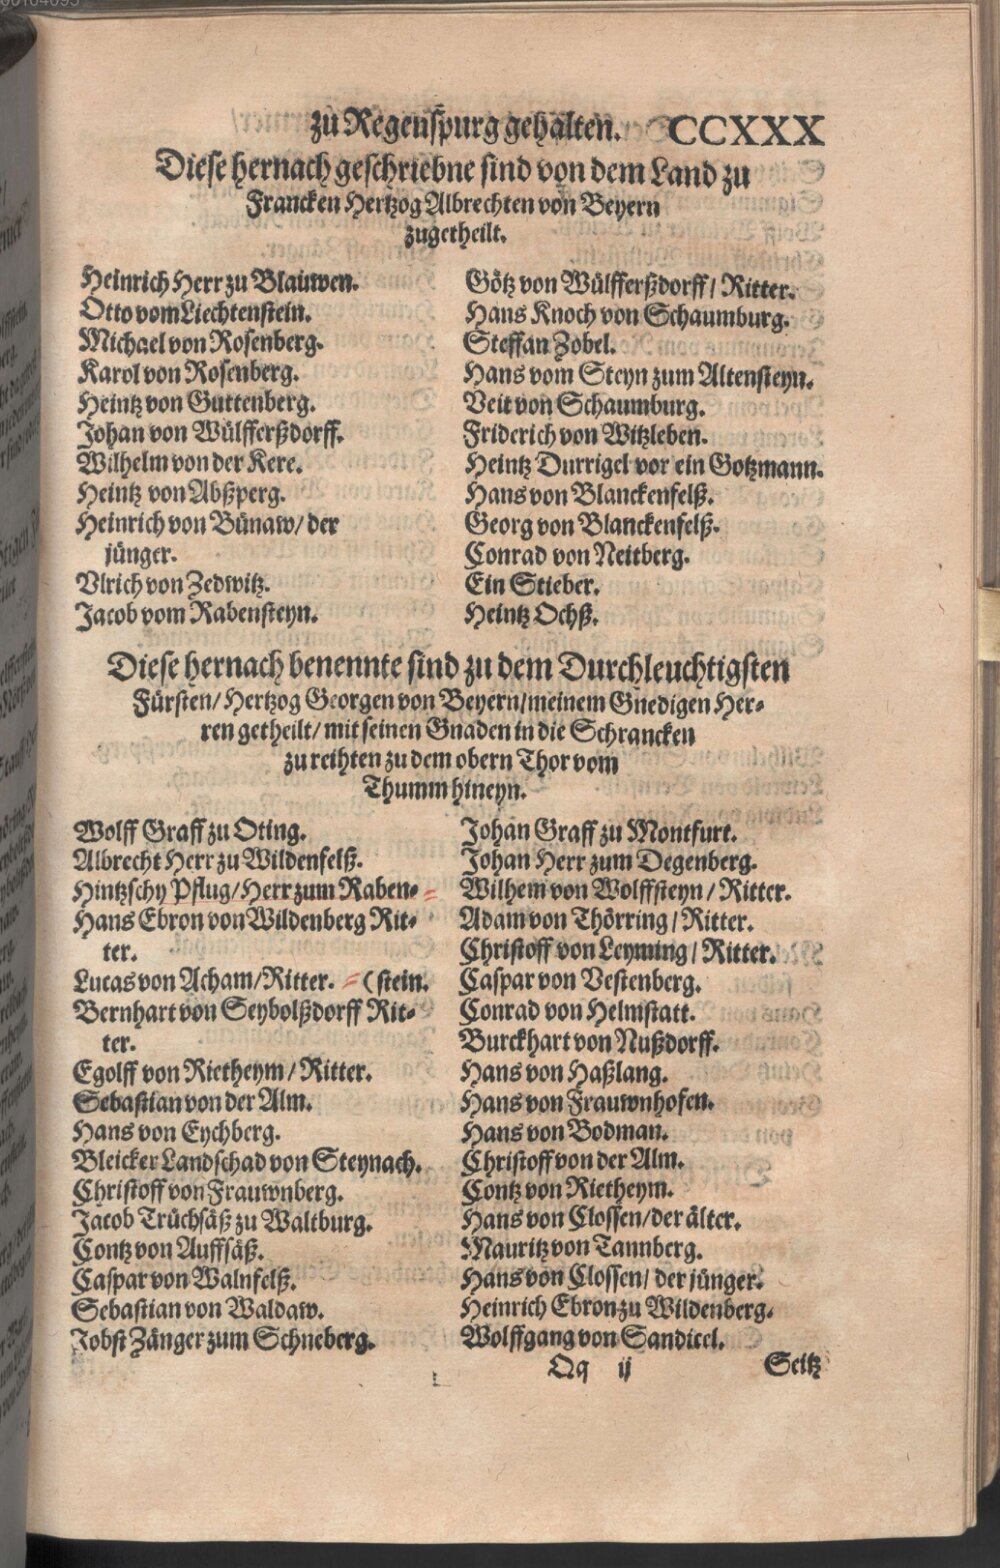 zu Regenspurg gehalten. CCXXX
Diese hernach geschriebne sind von dem Land zu
Francken Hertzog Albrechten von Beyern
zugetheilt.
Heinrich Herr zu Blauwen.
Otto vom Liechtenstein.
Michael von Rosenberg.
Karol von Rosenberg.
Heintz von Guttenberg.
Johan von Wülfferßdorff.
Wilhelm von der Kere.
Heintz von Abßperg.
Heinrich von Bünaw/ der
jünger.
Vlrich von Zedwitz.
Jacob vom Rabensteyn.
Götz von Wülfferßdorff/ Ritter.
Hans Knoch von Schaumburg.
Steffan Zobel.
Hans vom Steyn zum Altensteyn.
Veit von Schaumburg.
Friderich von Witzleben.
Heintz Durrigel vor ein Gotzmann.
Hans von Blanckenfelß.
Georg von Blanckenfelß.
Conrad von Neitberg.
Ein Stieber.
Heintz Ochß.
Diese hernach benennte sind zu dem Durchleuchtigsten
Fürsten/ Hertzog Georgen von Beyern/ meinem Gnedigen Her-
ren getheilt/ mit seinen Gnaden in die Schrancken
zu reihten zu dem obern Thor vom
Thumm hineyn.
Wolff Graff zu Oting.
Albrecht Herr zu Wildenfelß.
Hintzschy Pflug/ Herr zum Raben-
Hans Ebron von Wildenberg Rit-
ter.
Lucas von Acham/ Ritter. (stein.
Bernhart von Seybolßdorff Rit-
ter.
Egolff von Rietheym/ Ritter.
Sebastian von der Alm.
Hans von Eychberg.
Bleicker Landschad von Steynach.
Christoff von Frauwnberg.
Jacob Trüchsäß zu Waltburg.
Contz von Auffsäß.
Caspar von Walnfelß.
Sebastian von Waldaw.
Jobst Zänger zum Schneberg.
Johan Graff zu Montfurt.
Johan Herr zum Degenberg.
Wilhem von Wolffsteyn/ Ritter.
Adam von Thörring/ Ritter.
Christoff von Leyming/ Ritter.
Caspar von Vestenberg.
Conrad von Helmstatt.
Burckhart von Nußdorff.
Hans von Haßlang.
Hans von Frauwnhofen.
Hans von Bodman.
Christoff von der Alm.
Contz von Rietheym.
Hans von Clossen/ der älter.
Mauritz von Tannberg.
Hans von Clossen/ der jünger.
Heinrich Ebron zu Wildenberg.
Wolffgang von Sandicel.
Qq ij Seitz